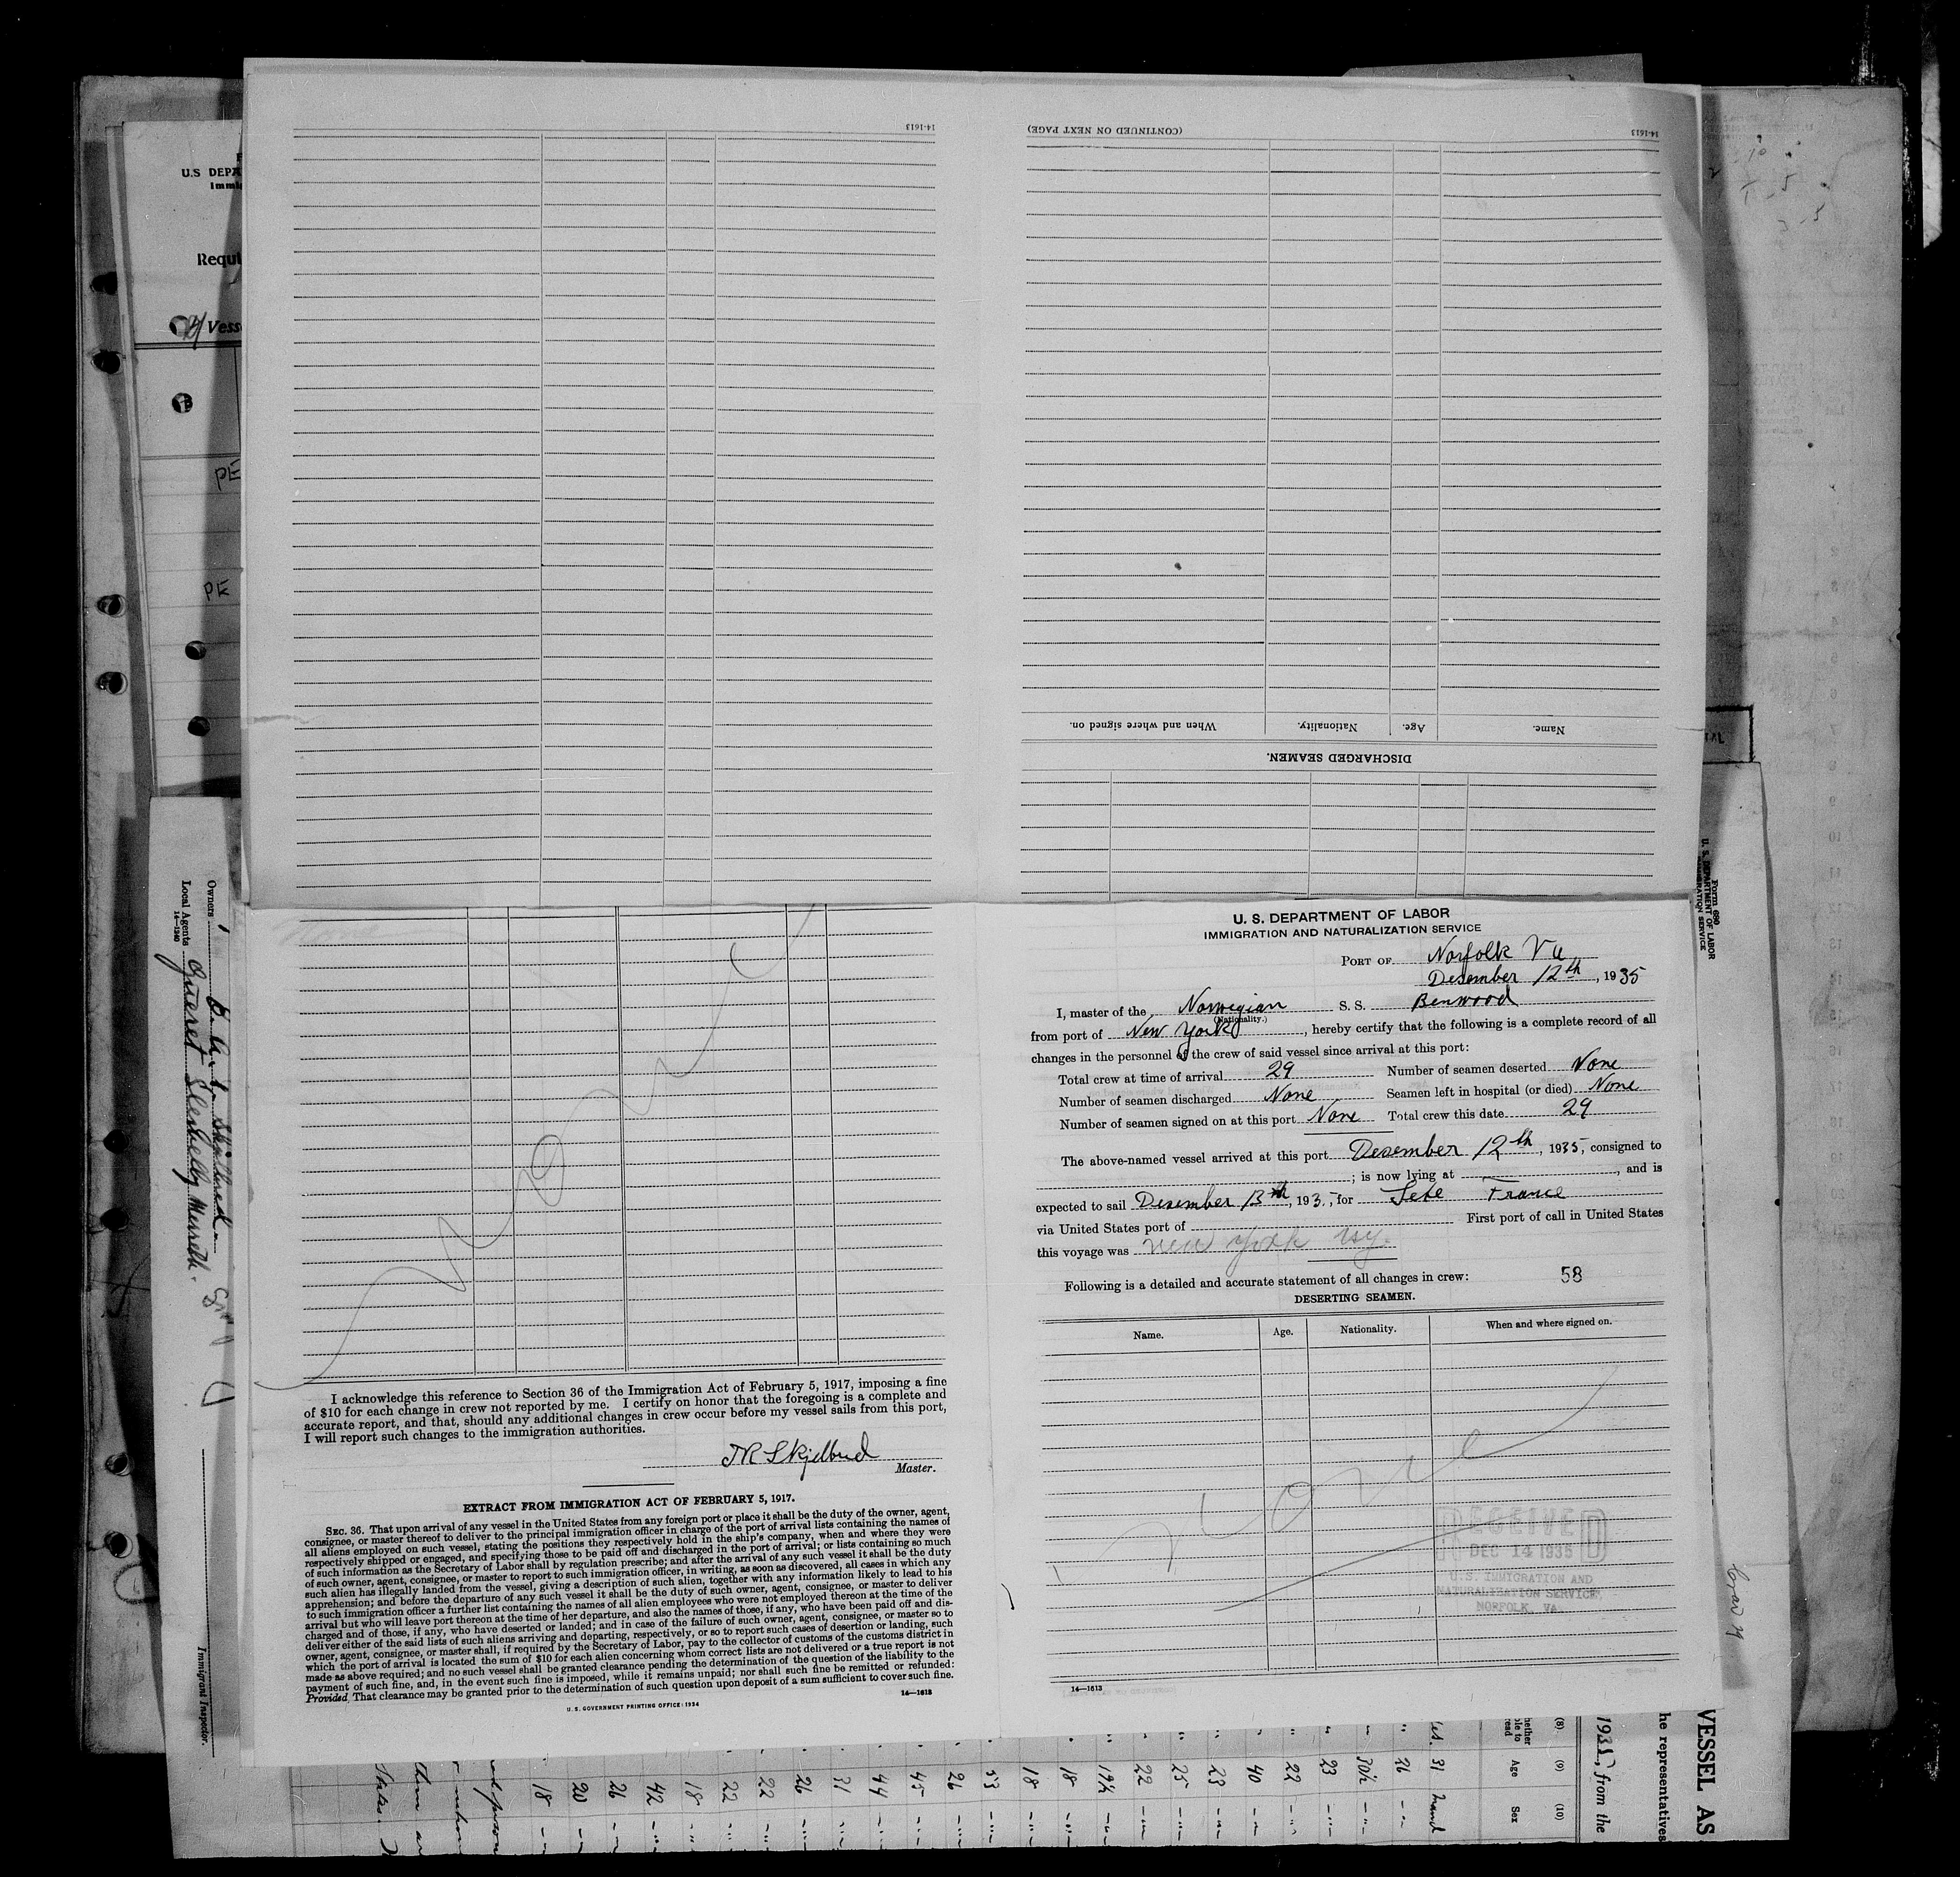 14-1613
(CONTINUED ON NEXT PAGE)
14-1613
When and where signed on.
Nationality.
Age.
Name.
DISCHARGED SEAMEN.
U.S DEPA
Immig
Requi
Vess
PE
PE
Owners
Local Agents
14—1240
Immigrant Inspector.
I acknowledge this reference to Section 36 of the Immigration Act of February 5, 1917, imposing a fine
of $10 for each change in crew not reported by me. I certify on honor that the foregoing is a complete and
accurate report, and that, should any additional changes in crew occur before my vessel sails from this port,
I will report such changes to the immigration authorities.
Master.
EXTRACT FROM IMMIGRATION ACT OF FEBRUARY 5, 1917.
SEC. 36. That upon arrival of any vessel in the United States from any foreign port or place it shall be the duty of the owner, agent,
consignee, or master thereof to deliver to the principal immigration officer in charge of the port of arrival lists containing the names of
all aliens employed on such vessel, stating the positions they respectively hold in the ship's company, when and where they were
respectively shipped or engaged, and specifying those to be paid off and discharged in the port of arrival; or lists containing so much
of such information as the Secretary of Labor shall by regulation prescribe; and after the arrival of any such vessel it shall be the duty
of such owner, agent, consignee, or master to report to such immigration officer, in writing, as soon as discovered, all cases in which any
such alien has illegally landed from the vessel, giving a description of such alien, together with any information likely to lead to his
apprehension; and before the departure of any such vessel it shall be the duty of such owner, agent, consignee, or master to deliver
to such immigration officer a further list containing the names of all alien employees who were not employed thereon at the time of the
arrival but who will leave port thereon at the time of her departure, and also the names of those, if any, who have been paid off and dis-
charged and of those, if any, who have deserted or landed; and in case of the failure of such owner, agent, consignee, or master so to
deliver either of the said lists of such aliens arriving and departing, respectively, or so to report such cases of desertion or landing, such
owner, agent, consignee, or master shall, if required by the Secretary of Labor, pay to the collector of customs of the customs district in
which the port of arrival is located the sum of $10 for each alien concerning whom correct lists are not delivered or a true report is not
made as above required; and no such vessel shall be granted clearance pending the determination of the question of the liability to the
payment of such fine, and, in the event such fine is imposed, while it remains unpaid; nor shall such fine be remitted or refunded:
Provided, That clearance may be granted prior to the determination of such question upon deposit of a sum sufficient to cover such fine.
14—1613
U. S. GOVERNMENT PRINTING OFFICE: 1934
None
U. S. DEPARTMENT OF LABOR
IMMIGRATION AND NATURALIZATION SERVICE
PORT OF Norfolk Va
Desember 12th, 1935
I, master of the Norwegian S. S. Benwood
(Nationality.)
from port of New York, hereby certify that the following is a complete record of all
changes in the personnel of the crew of said vessel since arrival at this port:
Total crew at time of arrival 29 Number of seamen deserted None
Number of seamen discharged None Seamen left in hospital (or died) None
Number of seamen signed on at this port None Total crew this date 29
The above-named vessel arrived at this port Desember 12th, 1935, consigned to
; is now lying at , and is
expected to sail Desember 13th, 193 , for Sete France
via United States port of First port of call in United States
this voyage was New York
Following is a detailed and accurate statement of all changes in crew: 58
DESERTING SEAMEN.
Name. Age. Nationality. When and where signed on.
None
RECEIVED
DEC 14 1935
U.S. IMMIGRATION AND
NATURALIZATION SERVICE,
NORFOLK, VA.
14—1613
Form 680
U. S. DEPARTMENT OF LABOR
IMMIGRATION SERVICE
VESSEL AS
he representatives
1935, from the
(8) (9) (10)
Age Sex
31
26
30½
23
22
40
23
25
22
19½
18
18
53
26
45
44
31
26
22
22
18
42
26
20
18